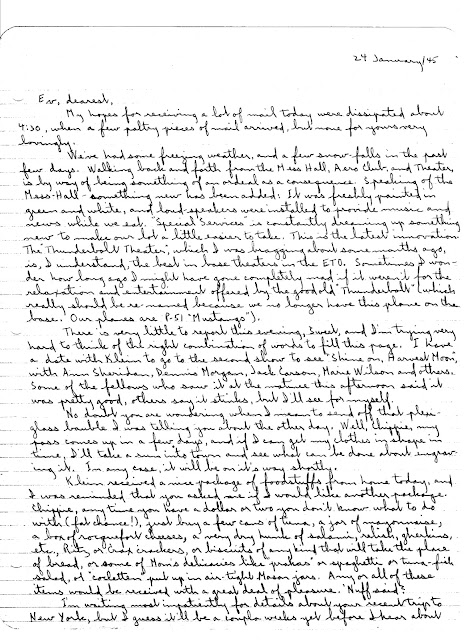 24 January/45
Ev, dearest,
My hopes for receiving a lot of mail today were dissipated about
4:30, when a few paltry pieces of mail arrived, but none for yours very
lovingly.
We've had some freezing weather, and a few snow-falls in the past
few days. Walking back and forth from the Mess Hall, Aero Club, and Theater,
is by way of being something of an ordeal as a consequence. Speaking of the
Mess-Hall - something new has been added: It was freshly painted in
green and white, and loud-speakers were installed to provide music and
news while we eat. "Special Services" is constantly dreaming up something
new to make our lot a little easier to take. This is the latest innovation.
The Thunderbolt Theater, which I was bragging about some months ago,
is, I understand, the best in base theaters in the ETO. Sometimes I won-
der how long ago I might have gone completely mad if it weren't for the
relaxation and entertainment offered by the good old "Thunderbolt" (which
really should be re-named because we no longer have this plane on the
base. Our planes are P-51 "Mustangs").
There is very little to report this evening, Sweet, and I'm trying very
hard to think of the right combination of words to fill this page. I have
a date with Klein to go to the second show to see "Shine on, Harvest Moon",
with Ann Sheridan, Dennis Morgan, Jack Carson, Marie Wilson and others.
Some of the fellows who saw it at the matinee this afternoon said it
was pretty good, others say it stinks, but I'll see for myself.
No doubt you are wondering when I mean to send off that plexi-
glass bauble I was telling you about the other day. Well, Chippie, my
pass comes up in a few days, and if I can get my clothes in shape in
time, I'll take a run into town and see what can be done about engrav-
ing it. In any case, it will be on it's way shortly.
Klein received a nice package of foodstuffs from home today, and
I was reminded that you asked me if I would like another package.
Chippie, any time you have a dollar or two you don't know what to do
with (fat chance!), just buy a few cans of tuna, a jar of mayonnaise,
a box of roquefort cheeses, a very dry hunk of salami, relish, gherkins,
etc., Ritz or crackers, or biscuits of any kind that will take the place
of bread, or some of Mom's delicacies like or spaghetti or tuna-fish
salad, or "cotletten" put up in air-tight Mason jars. Any or all of these
items would be received with a great deal of pleasure. 'Nuff said?
I'm waiting most impatiently for details about your recent trip to
New York, but I guess it'll be a couple weeks yet before I hear about